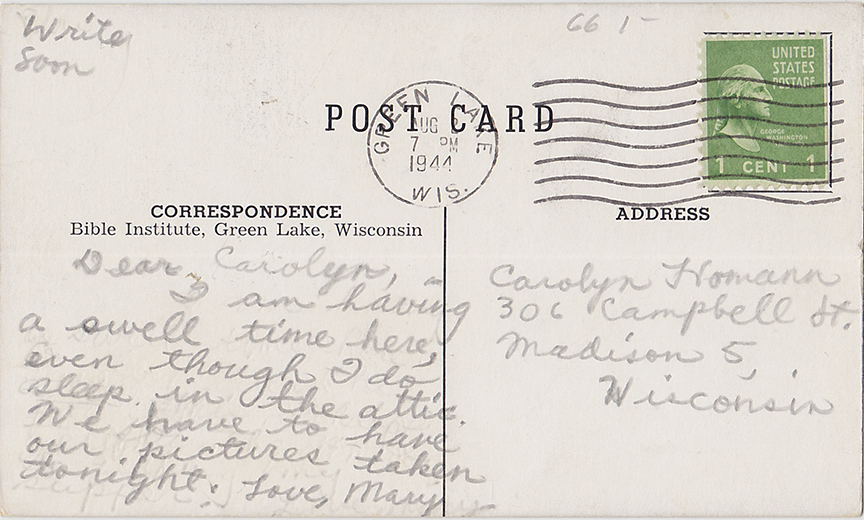 Write
Soon
66 1-
UNITED
STATES
POSTAGE
GEORGE
WASHINGTON
1 CENT 1
POST CARD
GREEN LAKE
AUG
7 PM
1944
WIS.
CORRESPONDENCE
Bible Institute, Green Lake, Wisconsin
Dear Carolyn,
I am having
a swell time here,
even though I do
sleep in the attic.
We have to have
our pictures taken
tonight. Love, Mary
ADDRESS
Carolyn Homann
306 Campbell St.
Madison 5,
Wisconsin